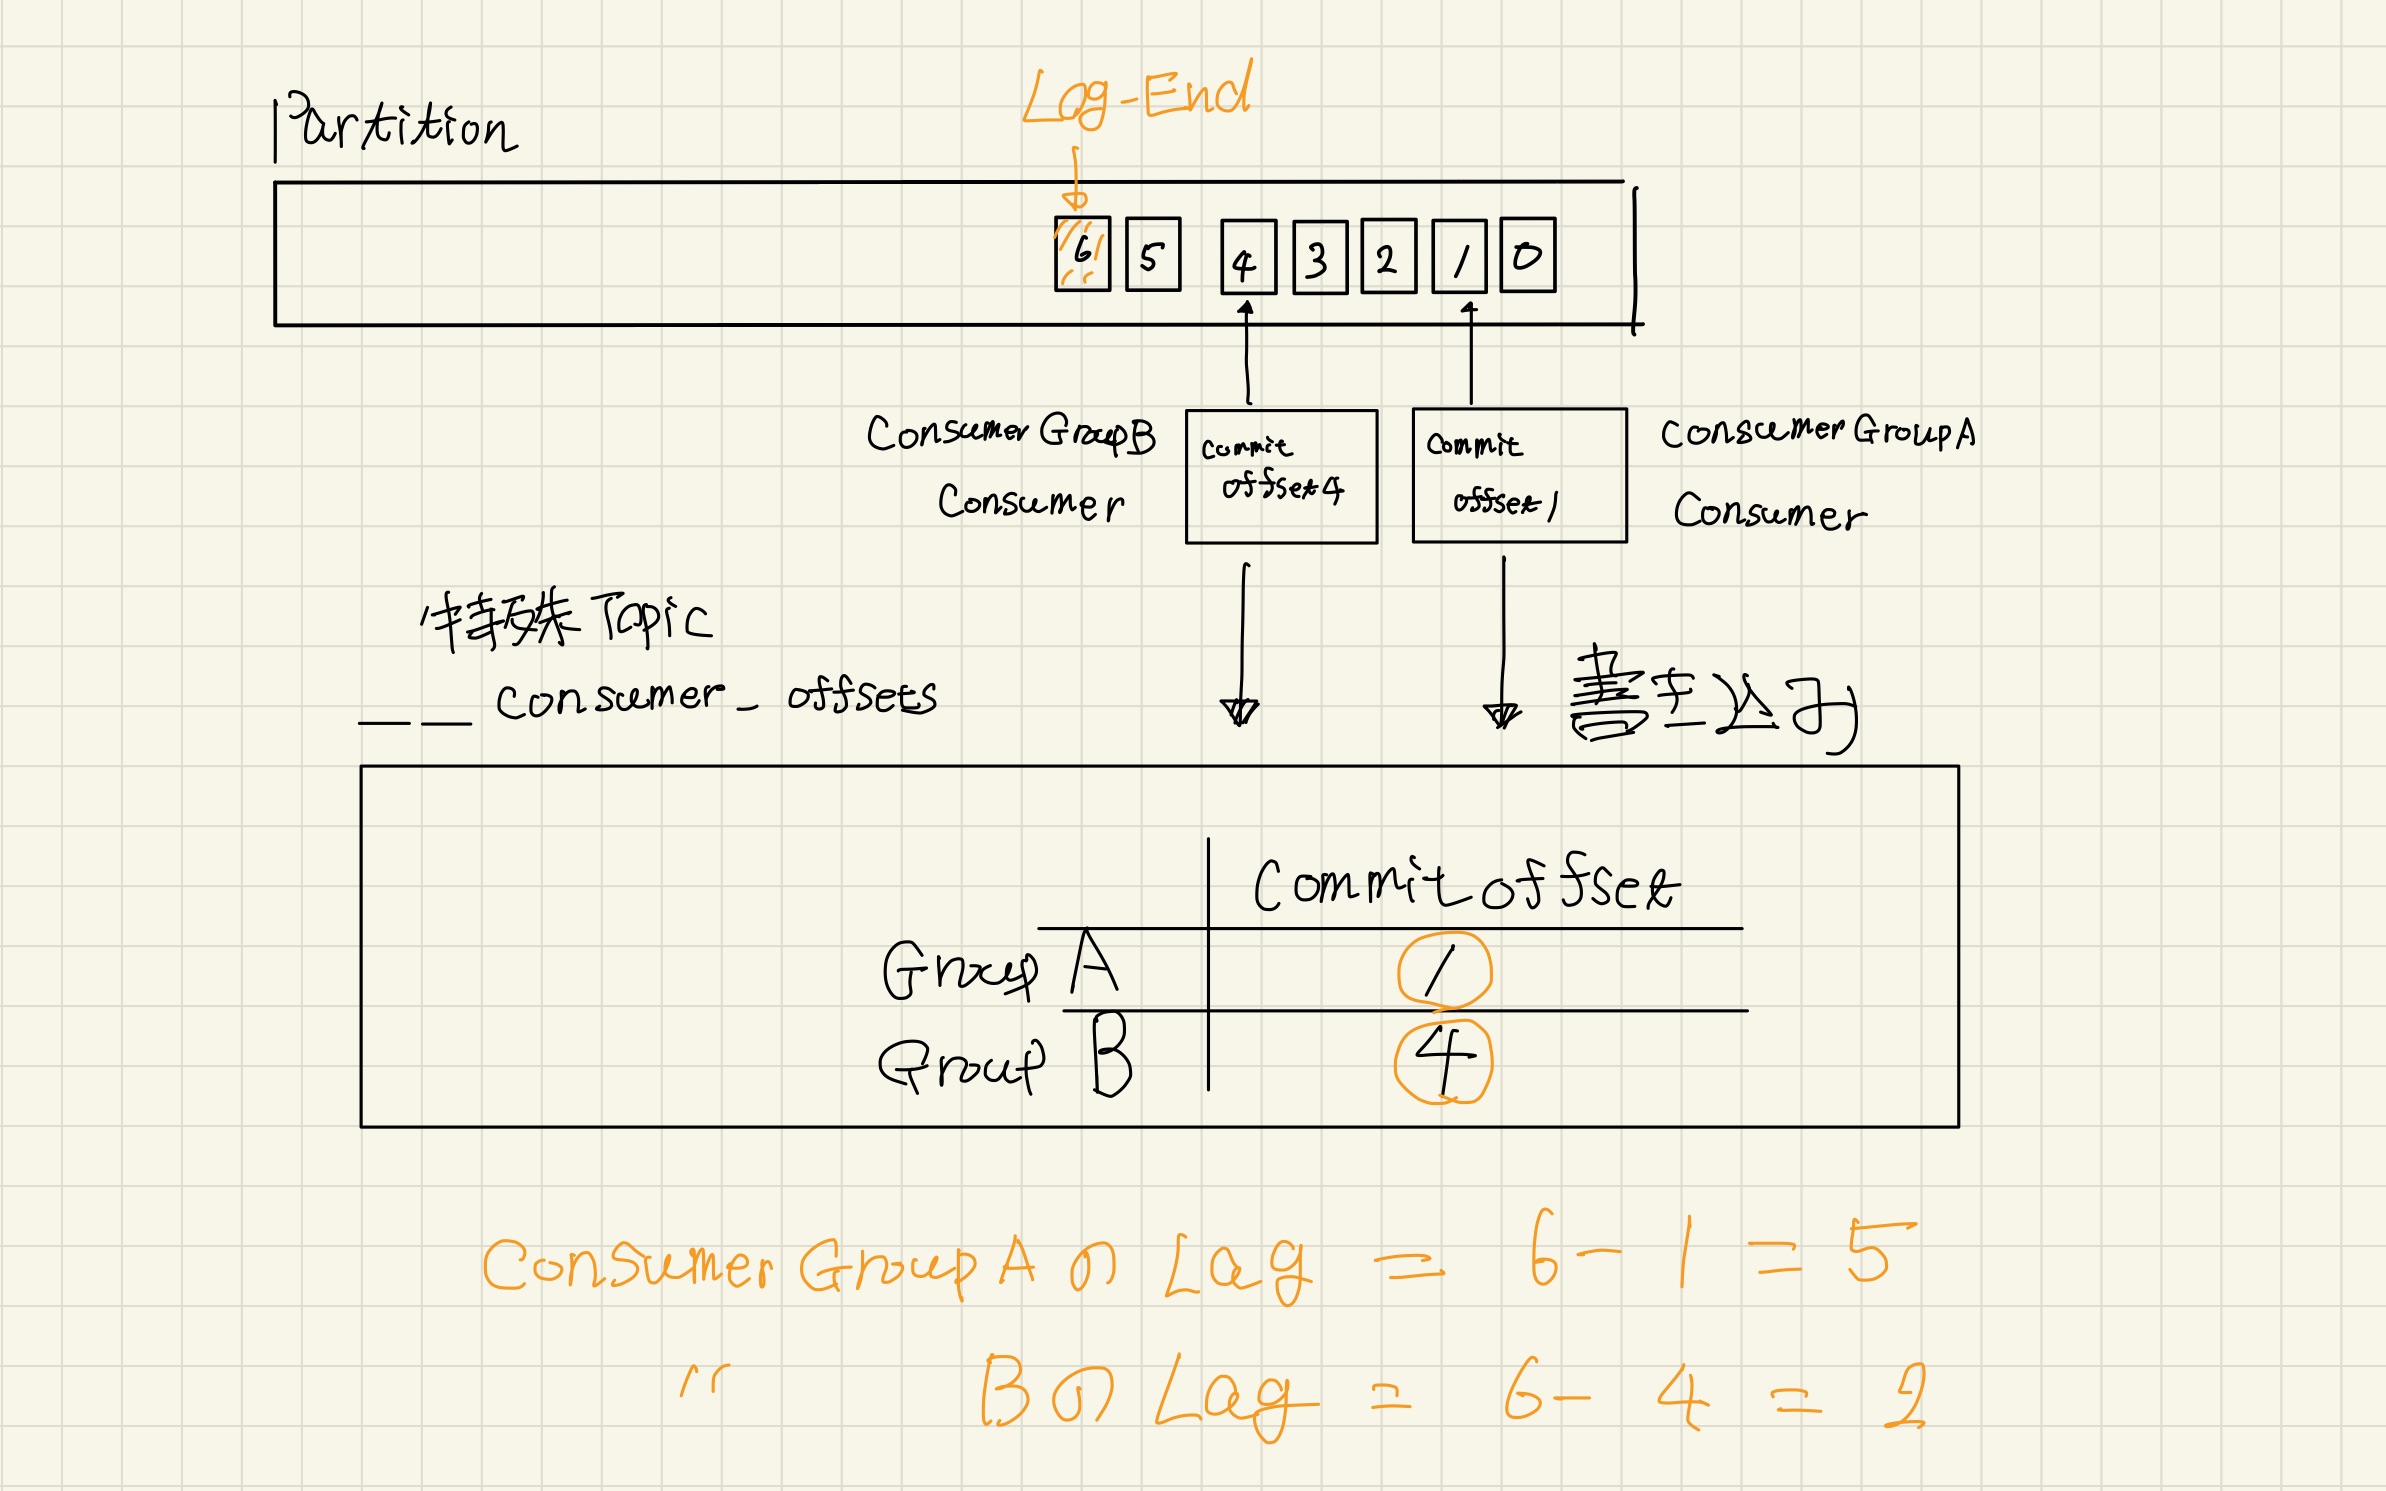 Log-End
Partition
6 5 4 3 2 1 0
Consumer GroupB
Consumer
Commit
offset4
Commit
offset1
ConsumerGroupA
Consumer
特殊Topic
__consumer_offsets
書き込み
Commit offset
Group A 1
Group B 4
Consumer GroupAの Lag = 6-1=5
〃 Bの Lag = 6-4=2